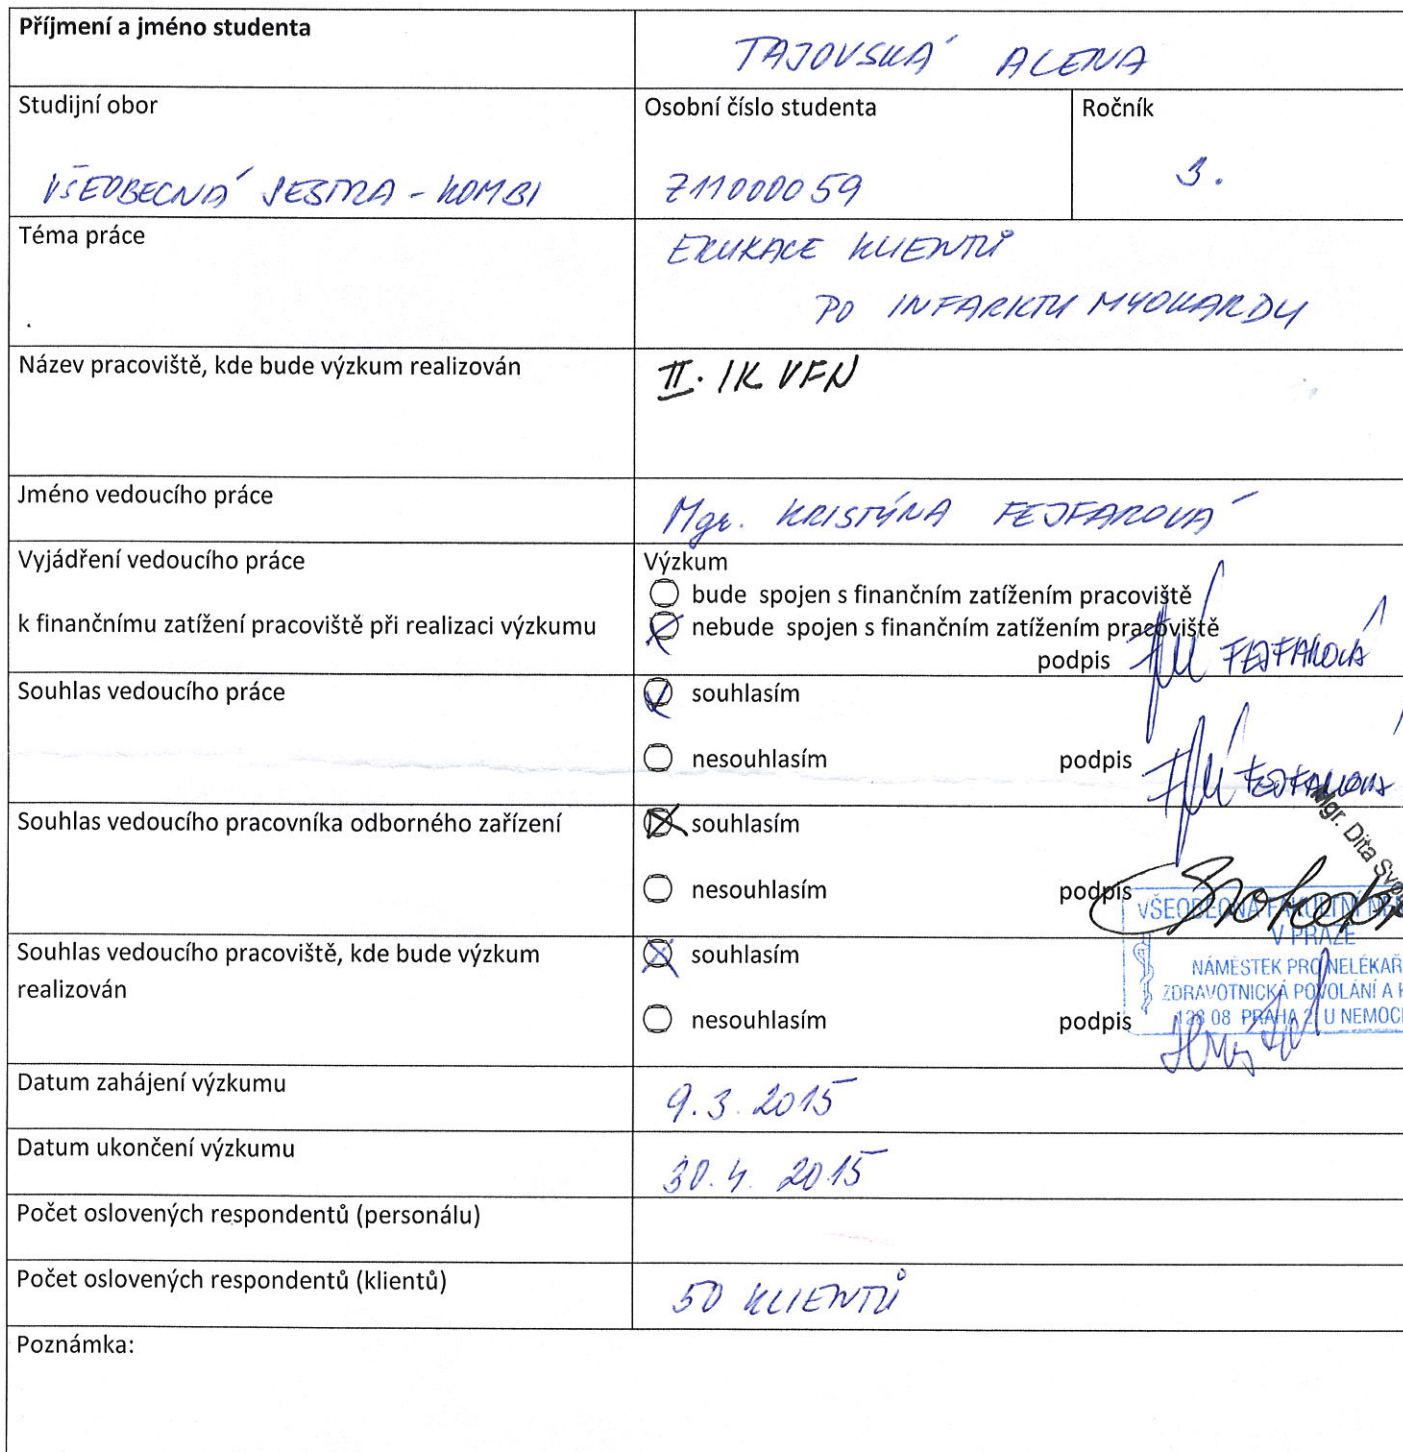 Příjmení a jméno studenta
TAJOVSKÁ ALENA
Studijní obor
VŠEOBECNÁ SESTRA - KOMBI
Osobní číslo studenta
Z11000059
Ročník
3.
Téma práce
EDUKACE KLIENTŮ
PO INFARKTU MYOKARDU
Název pracoviště, kde bude výzkum realizován
II. IK VFN
Jméno vedoucího práce
Mgr. KRISTÝNA FEJFAROVÁ
Vyjádření vedoucího práce
k finančnímu zatížení pracoviště při realizaci výzkumu
Výzkum
bude spojen s finančním zatížením pracoviště
nebude spojen s finančním zatížením pracoviště
podpis FEJFAROVÁ
Souhlas vedoucího práce
souhlasím
nesouhlasím
podpis FEJFAROVÁ
Souhlas vedoucího pracovníka odborného zařízení
souhlasím
nesouhlasím
podpis
Mgr. Dita
VŠEOBECNÁ FAKULTNÍ
V PRAZE
NÁMĚSTEK PRO NELÉKAŘ
ZDRAVOTNICKÁ POVOLÁNÍ A
128 08 PRAHA 2, U NEMOC
Souhlas vedoucího pracoviště, kde bude výzkum
realizován
souhlasím
nesouhlasím
podpis
Datum zahájení výzkumu
9.3.2015
Datum ukončení výzkumu
30.4.2015
Počet oslovených respondentů (personálu)
Počet oslovených respondentů (klientů)
50 KLIENTŮ
Poznámka: